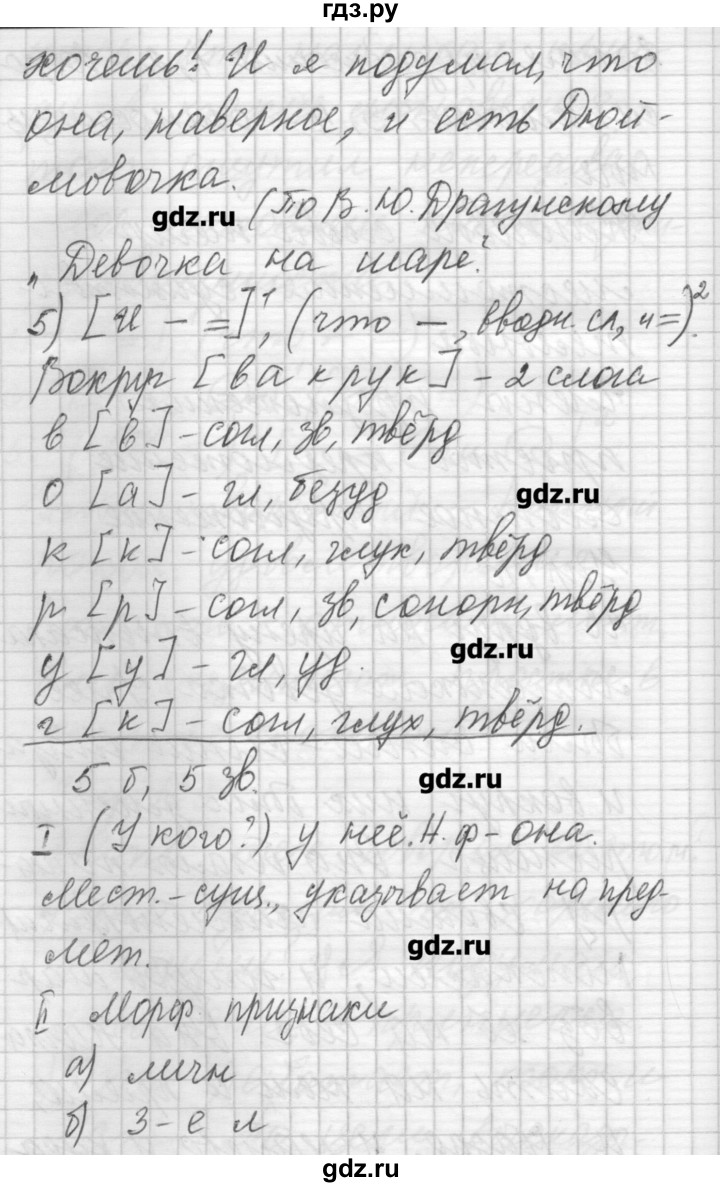 гдз.ру
хочешь! И я подумал, что
она, наверное, и есть Дюй-
мовочка.
gdz.ru (По В.Ю. Драгунскому
„Девочка на шаре“
5) [И – =]¹, (что –, вводн. сл, и =)².
Вокруг [вакрук] – 2 слога
в [в] – согл, зв, твёрд
о [а] – гл, безуд
gdz.ru
к [к] – согл, глух, твёрд
р [р] – согл, зв, сонорн, твёрд
gdz.ru
у [у] – гл, уд.
г [к] – согл, глух, твёрд.
5 б, 5 зв.
gdz.ru
I (У кого?) у неё. Н.ф – она.
Мест. – сущ., указывает на пред-
мет.
gdz.ru
II Морф признаки
а) личн
б) 3 – е л
gdz.ru